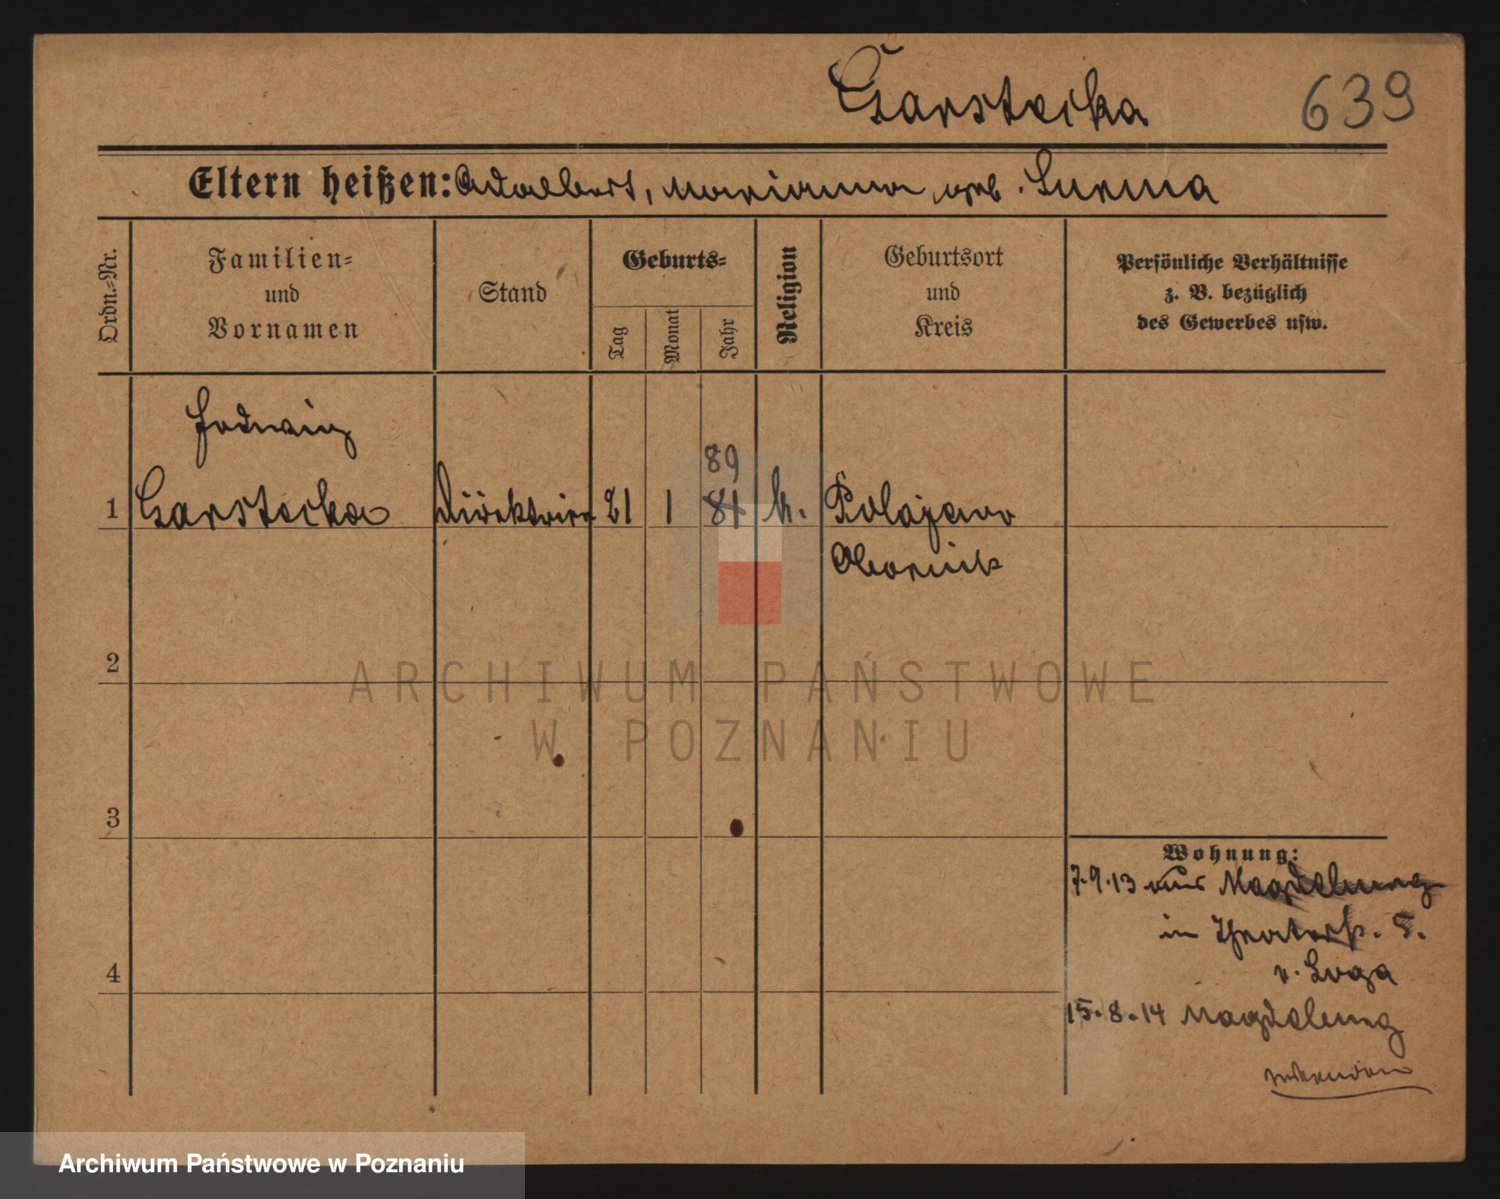 Garstecka 639
Eltern heißen: Adalbert, Marianna, geb. Surma
Ordn.-Nr.
Familien-
und
Vornamen
Stand
Geburts-
Tag
Monat
Jahr
Religion
Geburtsort
und
Kreis
Persönliche Verhältnisse
z. B. bezüglich
des Gewerbes usw.
Hedwig
89
1 Garstecka Direktrice 21 1 81 k. Polajewo
Obornik
2
ARCHIWUM PAŃSTWOWE
W POZNANIU
3
Wohnung:
7.9.13 aus Magdeburg
in Theaterstr. 5.
v. Loga
4
15.8.14 Magdeburg
Archiwum Państwowe w Poznaniu